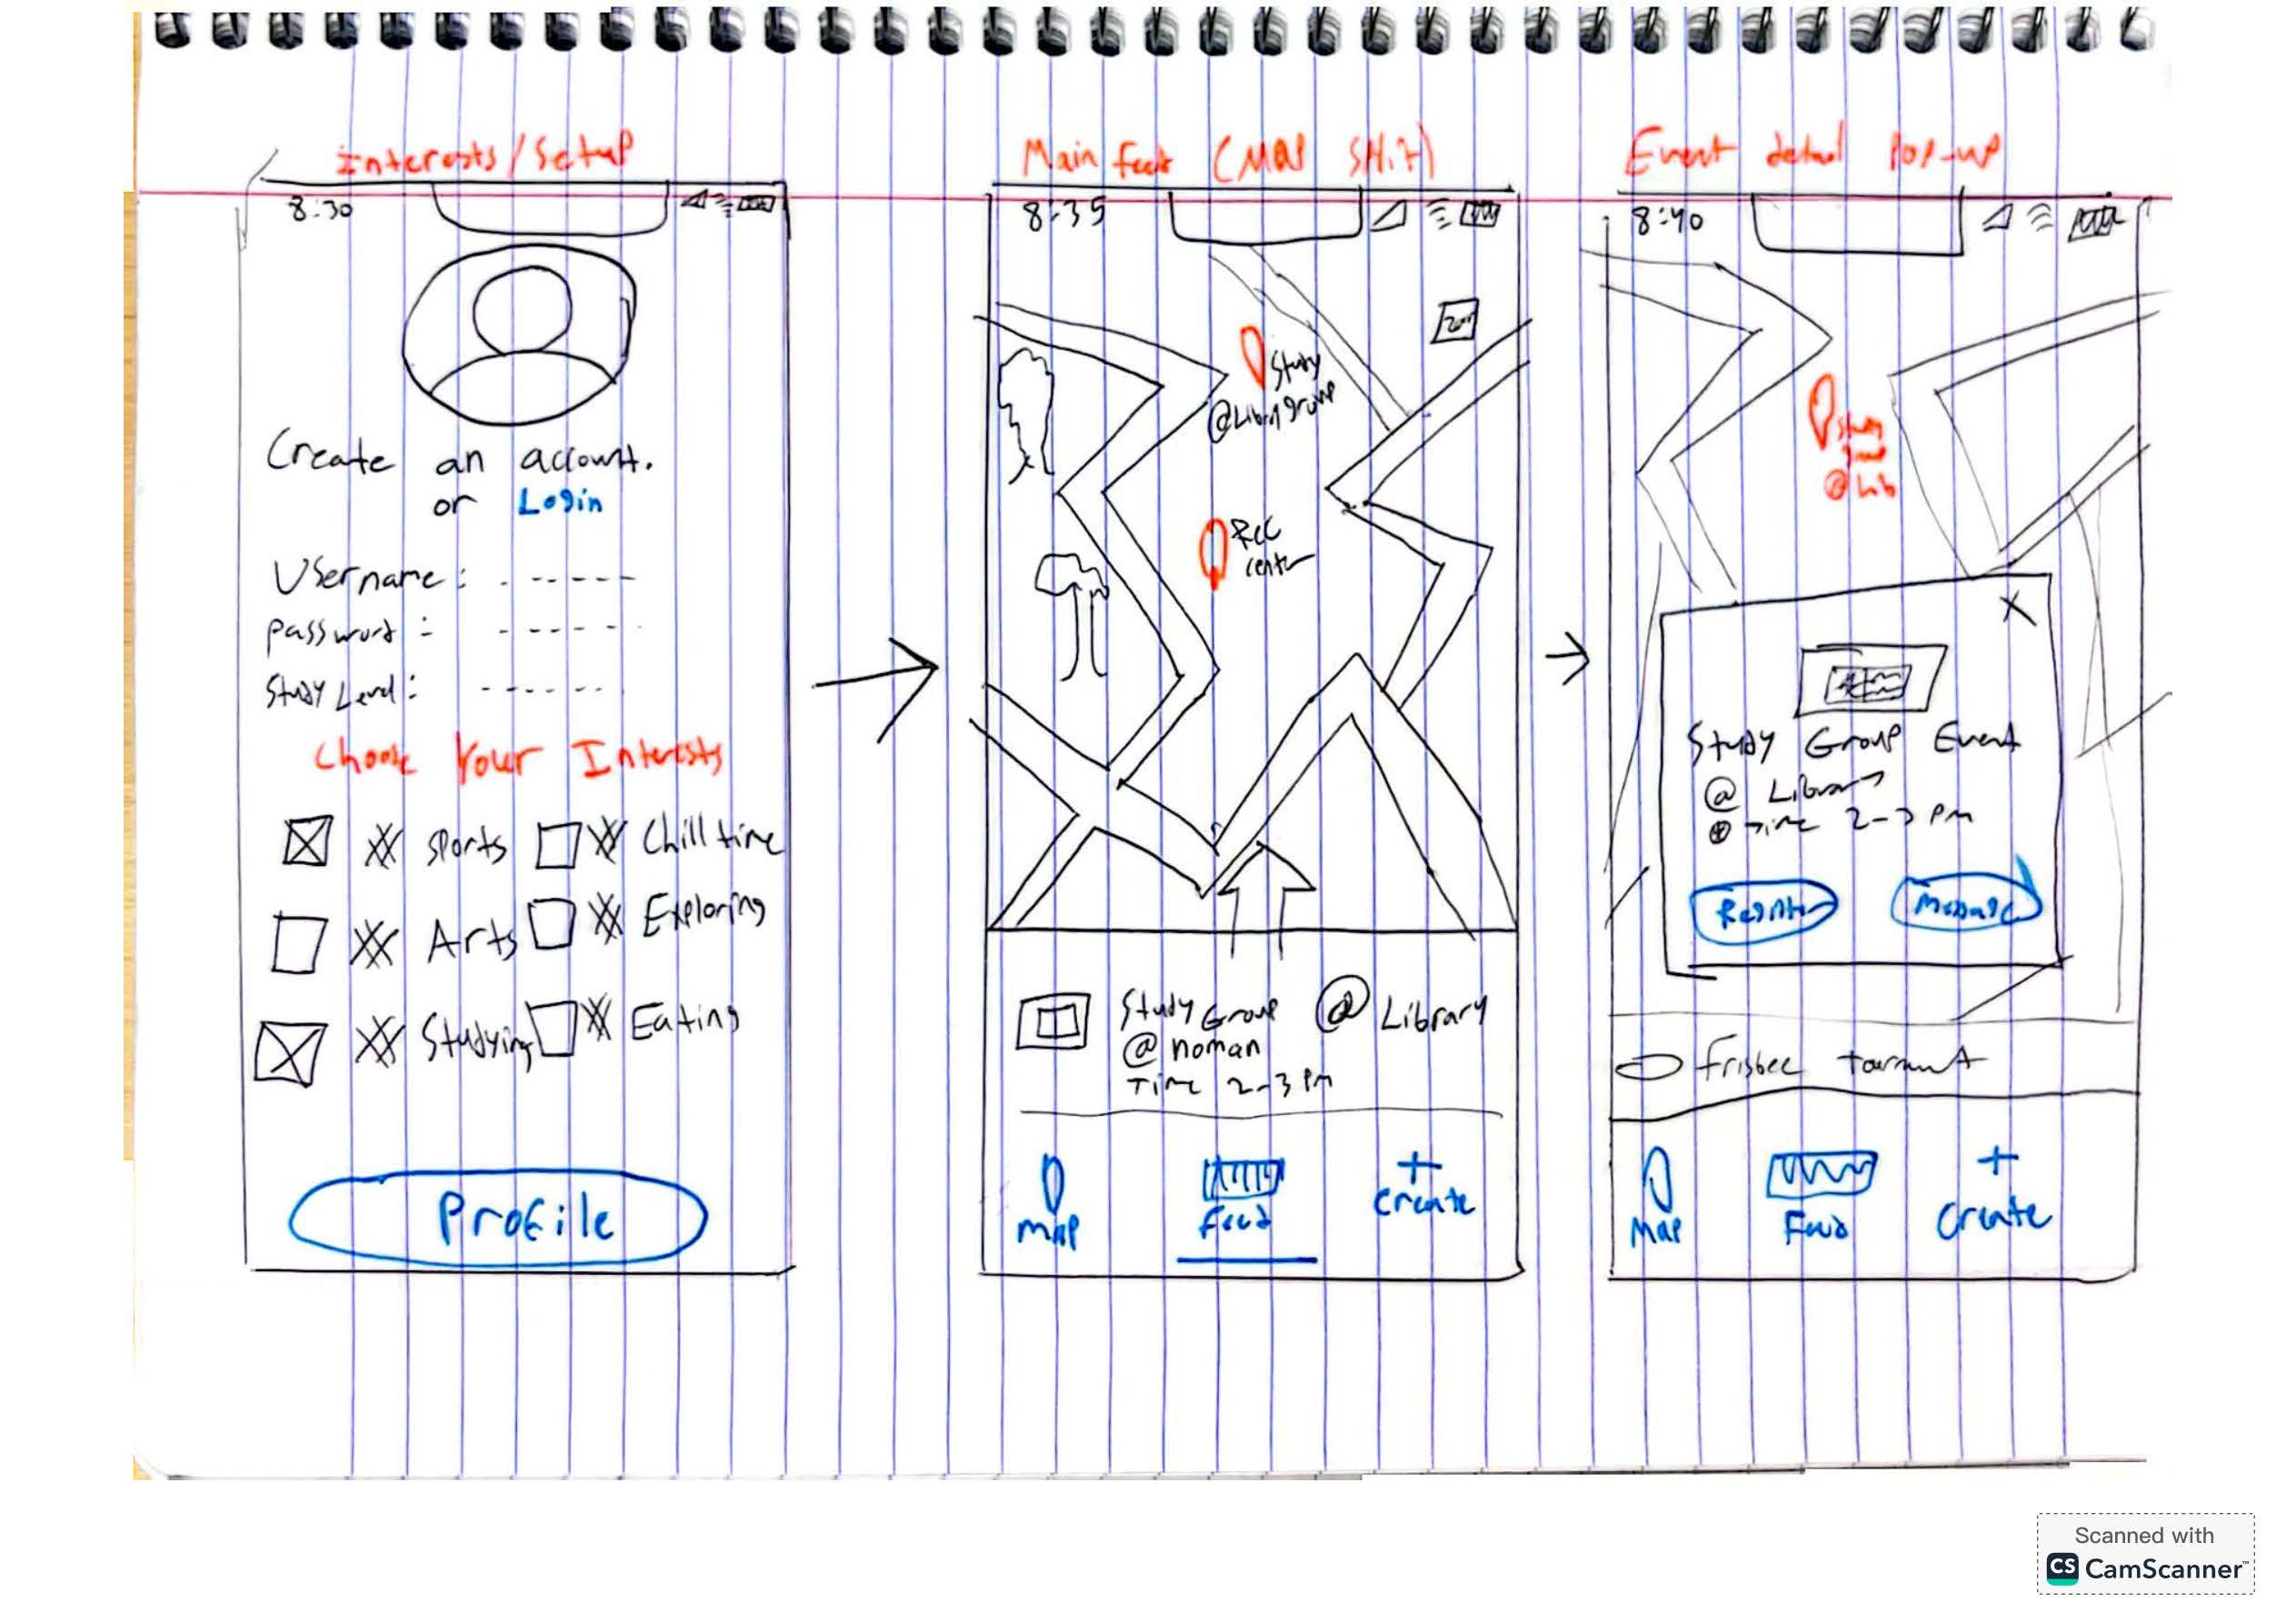 Interests/Setup
8:30
Create an account.
or Login
Username:
Password:
Study Level:
Choose Your Interests
Sports
Chill time
Arts
Exploring
Studying
Eating
Profile
Main feed (MAP Split)
8:35
Study
@Library group
Rec
center
Study Group @ Library
@ noman
Time 2-3 PM
Map
Feed
+
Create
Event detail Pop-up
8:40
Study
group
@ Lib
X
Study Group Event
@ Library
Time 2-3 PM
Register
Message
Frisbee
Map
Feed
+
Create
Scanned with
CS CamScanner™